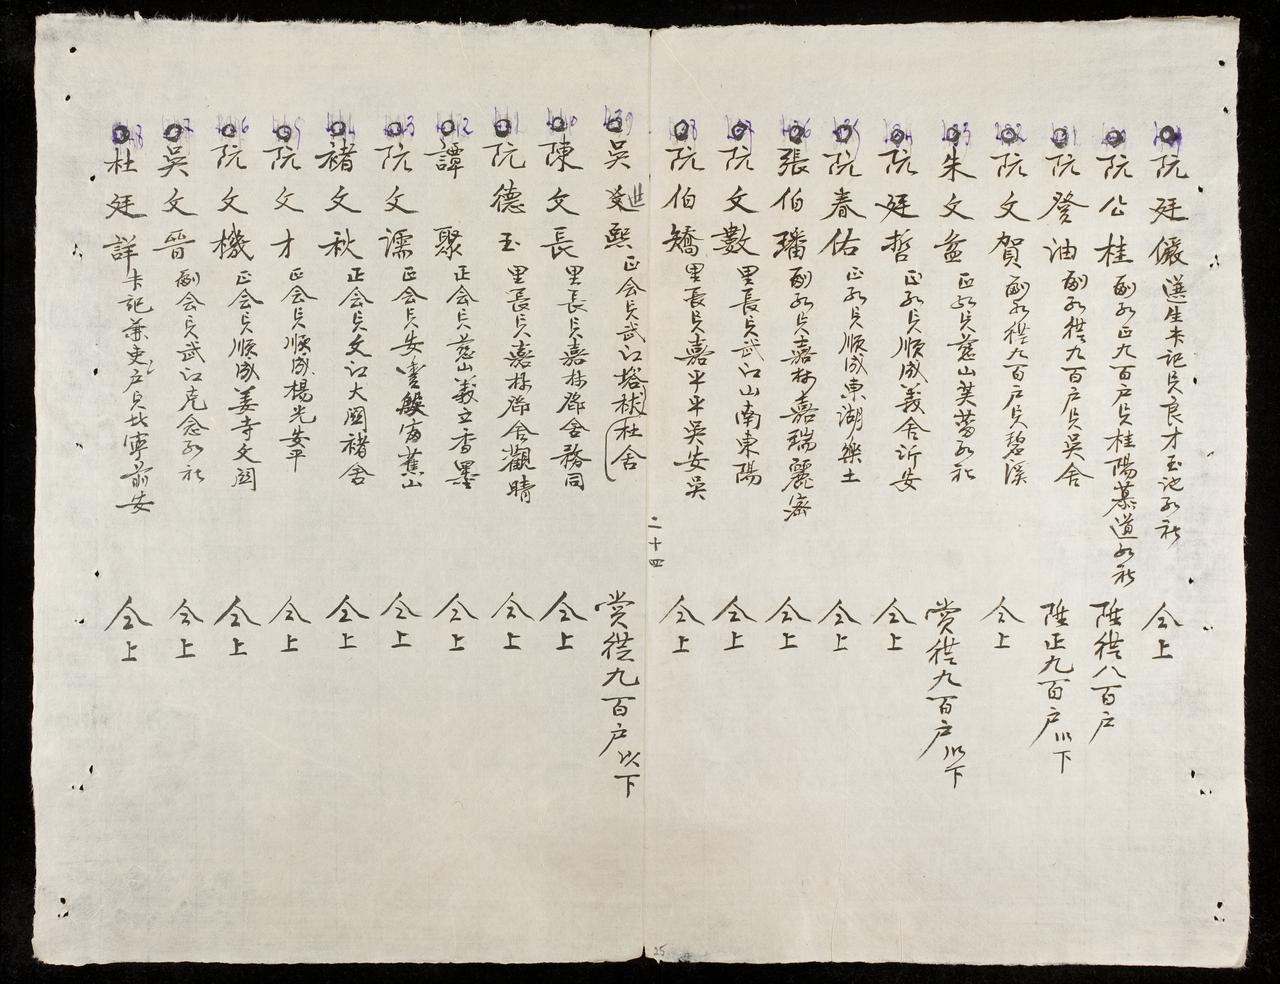 阮廷儼 選生卡記貟良才玉池社 仝上
阮公桂 副正九百户貟桂陽慕道社 陞從八百户
阮登油 副從九百户貟吳舍 陞正九百户以下
阮文賀 副從九百户貟憇溪 仝上
朱文益 正貟慈山芙蕾社 賞從九百户以下
阮廷哲 正貟順成義舍沂安 仝上
阮春佑 正貟順成東湖樂土 仝上
張伯璠 副貟嘉林嘉瑞麗密 仝上
阮文數 里長貟武江山南東陽 仝上
阮伯矯 里長貟嘉平平吳安吳 仝上
二十四
吳熙 正会貟武江杜舍 賞從九百户以下
陳文長 里長貟嘉林鄧舍務同 仝上
阮德玉 里長貟嘉林鄧舍觀晴 仝上
譚聚 正会貟慈山義立香墨 仝上
阮文濡 正会貟安豊殷富蕉山 仝上
褚文秋 正会貟文江大關褚舍 仝上
阮文才 正会貟順成楊光安平 仝上
阮文機 正会貟順成姜寺文關 仝上
吳文晉 副会貟武江克念社 仝上
杜廷詳 卡記兼吏户貟北寧前安 仝上
25